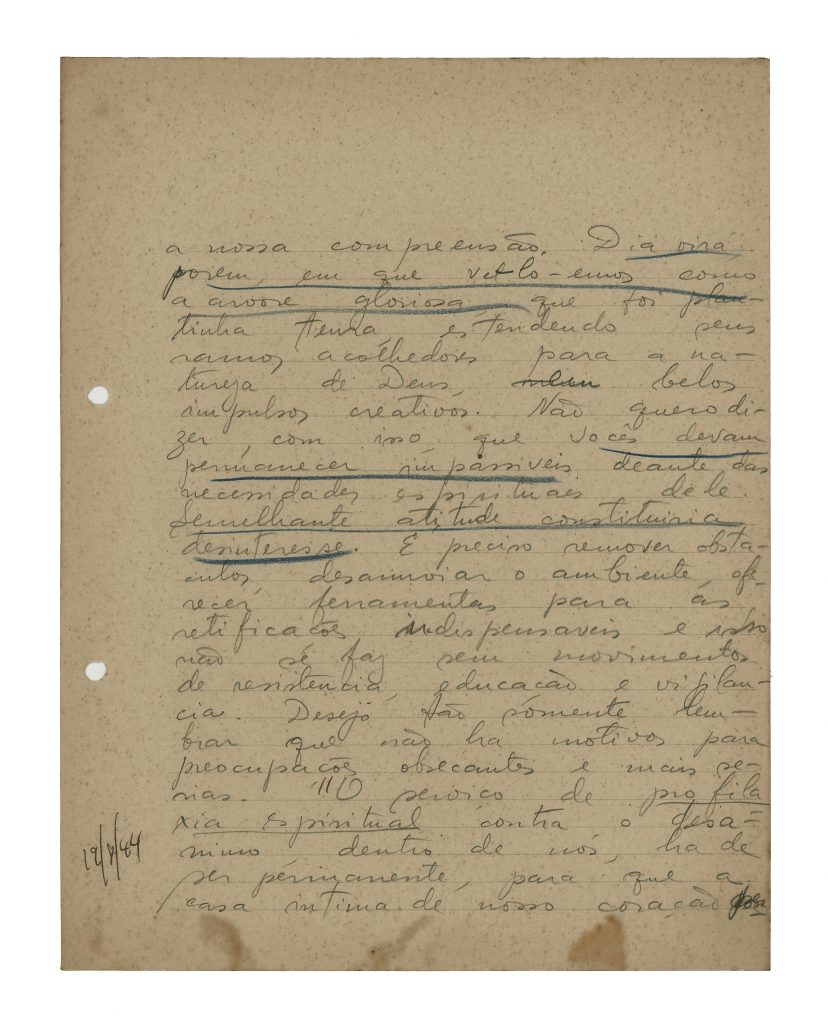 a nossa compreensão. Dia virá,
porem, em que vel-lo-emos como
a arvore gloriosa, que foi plan-
tinha tenra, estendendo seus
ramos acolhedores para a na-
tureza de Deus, belos
impulsos creativos. Não quero di-
zer, com isso, que vocês devam
permanecer impassiveis deante das
necessidades espirituaes dele.
Semelhante atitude constituiria
desinteresse. É preciso remover obsta-
culos, desanuviar o ambiente, ofe-
recer ferramentas para ás
retificacões indispensaveis e isso
não se faz sem movimentos
de resistencia, educacão e vigilan-
cia. Desejo tão sómente lem-
brar que não ha motivos para
preocupacões obsecantes e mais se-
rias. "O servico de profila
xia espiritual contra o desa-
nimo, dentro de nós, ha de
ser permanente, para que a
casa intima de nosso coracão
19/8/44